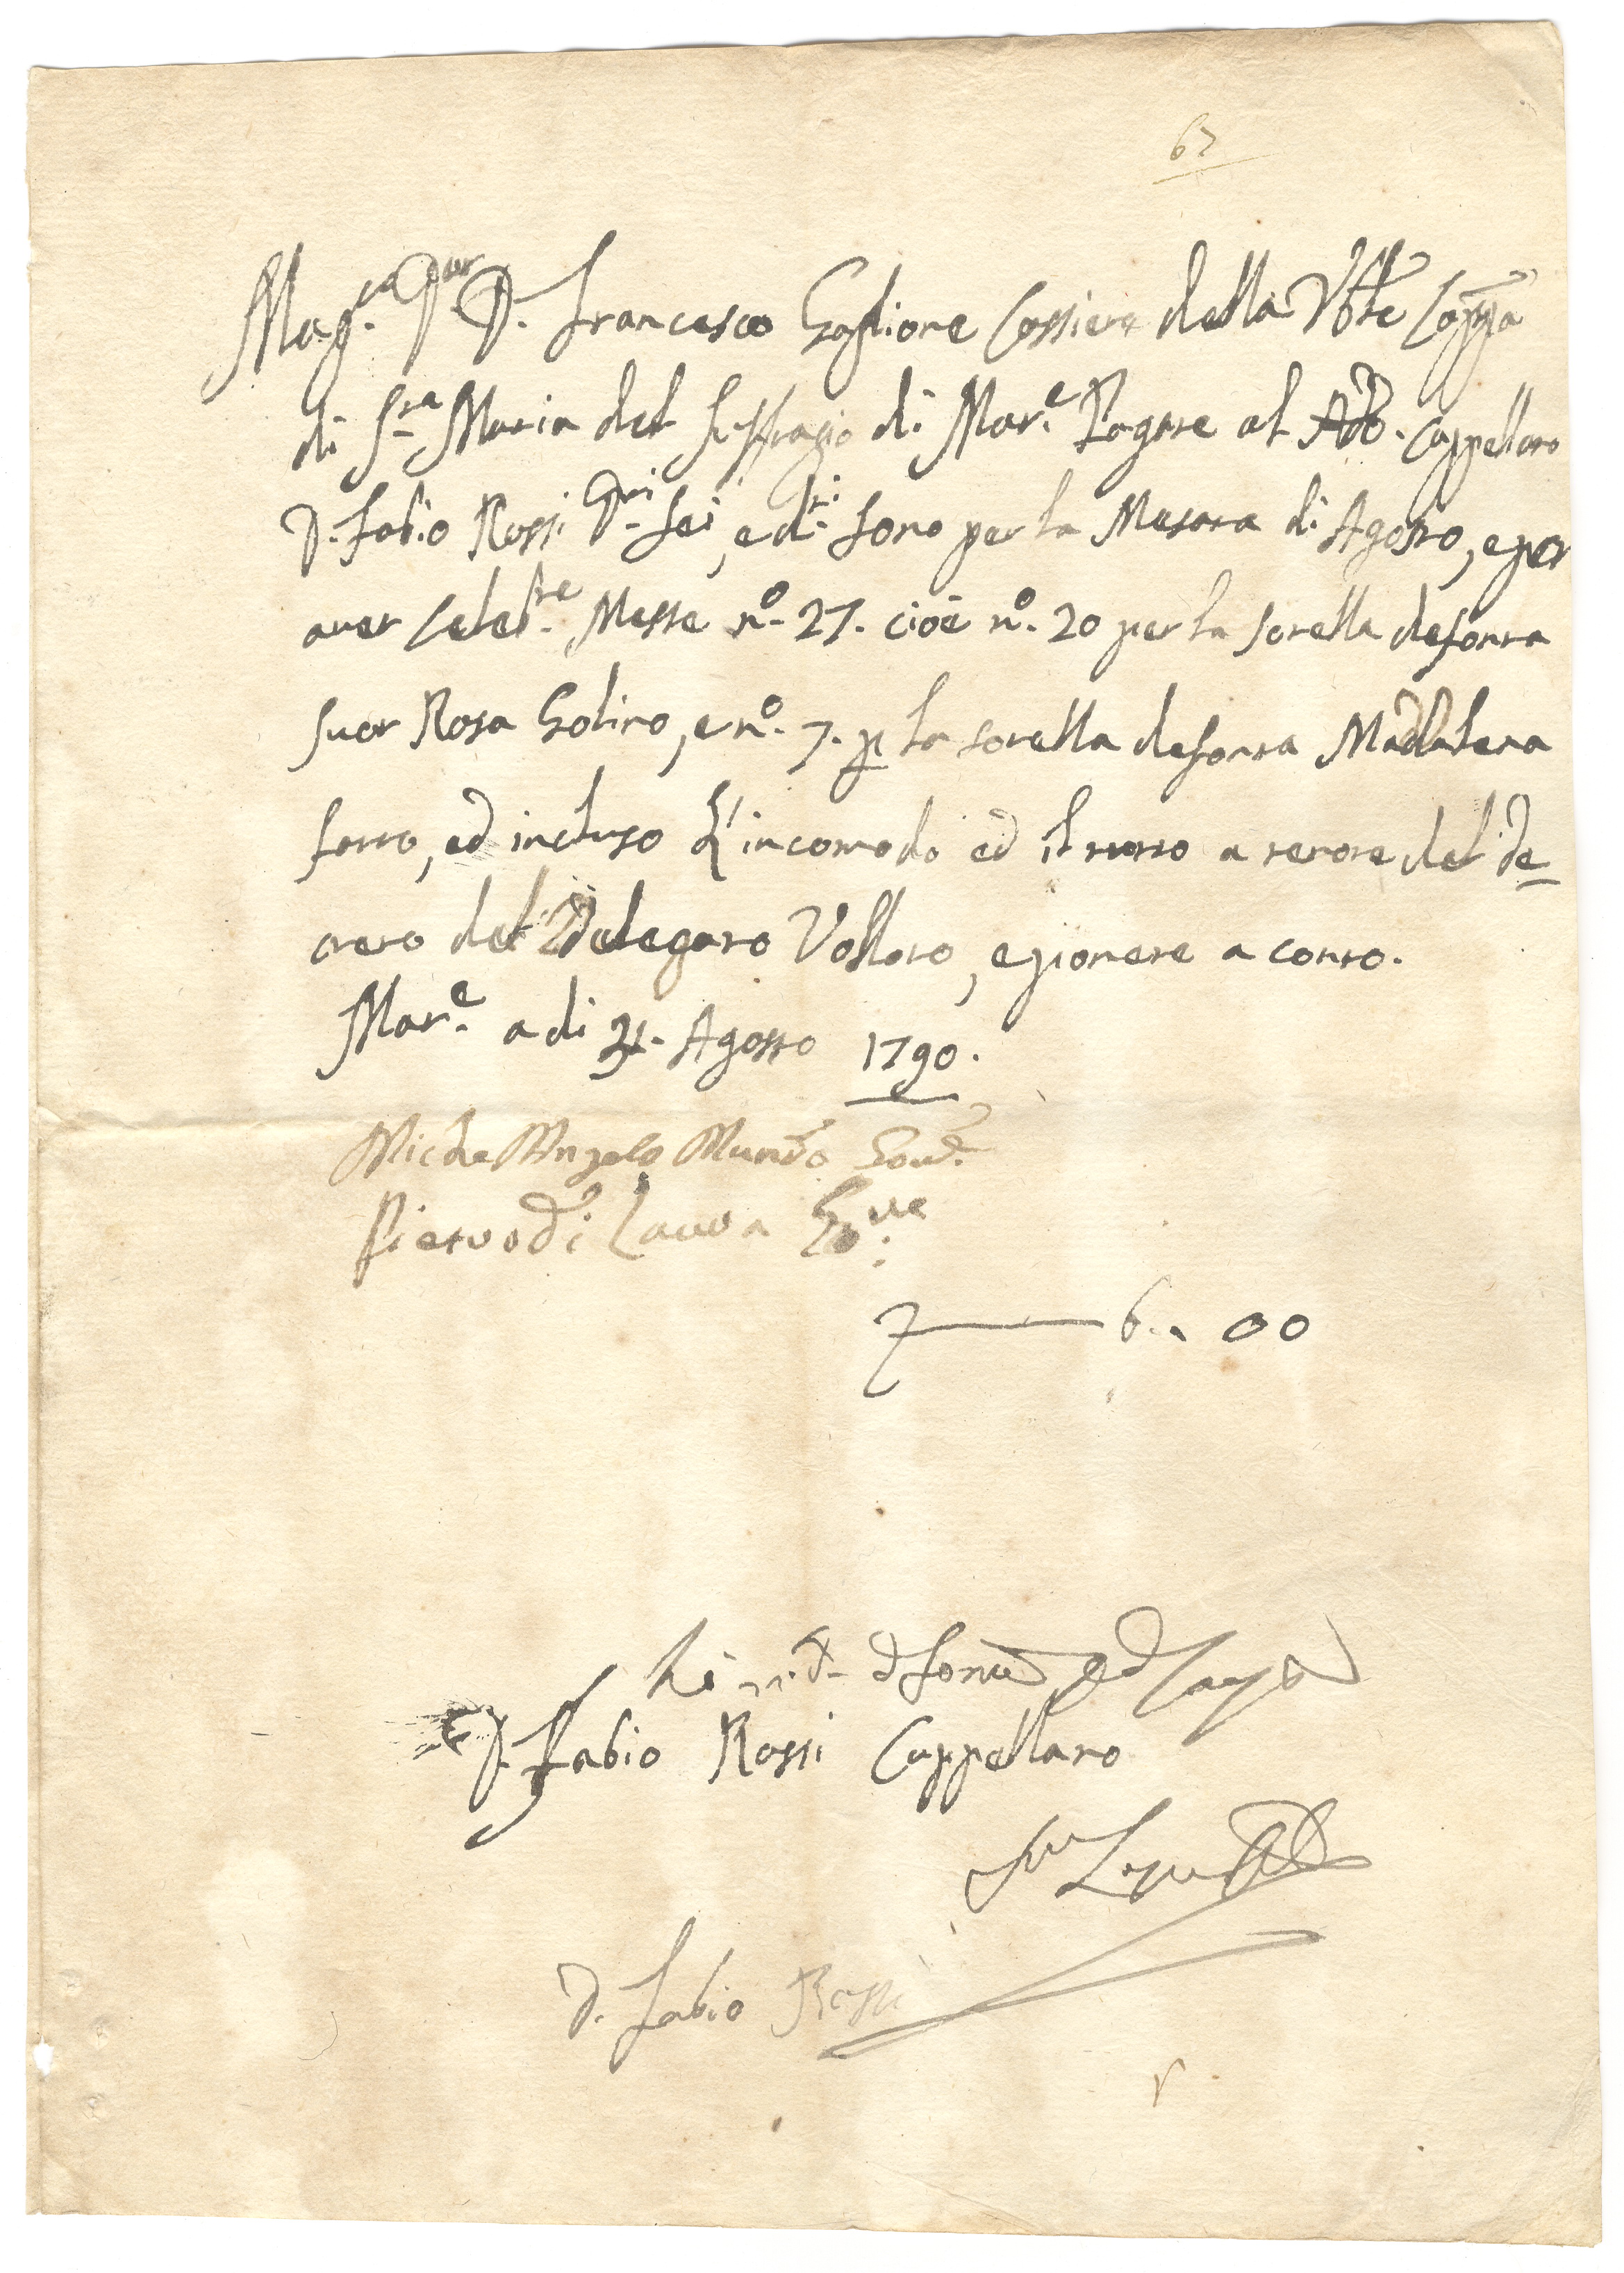 67
Mag.co D. Francesco Gaglione Cassiere della Vble Cappa
di S.ta Maria del Suffraggio di Mar.e Pagate al Rdo. Cappellano
D. Fabio Rossi D.ti sei, e d.ti sono per la Mesata di Agosto, e per
aver celeb.te Messe n.o 27. cioè n.o 20 per la sorella defonta
Suor Rosa Golino, e n.o 7. p la sorella defonta Maddalena
ed incluso L'incomodo ed il a tenore del de=
creto del Delegato Vollaro, e ponete a conto.
Mar.e a di 31. Agosto 1790.
Michel'Angelo Mundo Gov.
Pietro di Lauro Go.ve
6. 00
D. Fabio Rossi Cappellano
D. Fabio Rossi